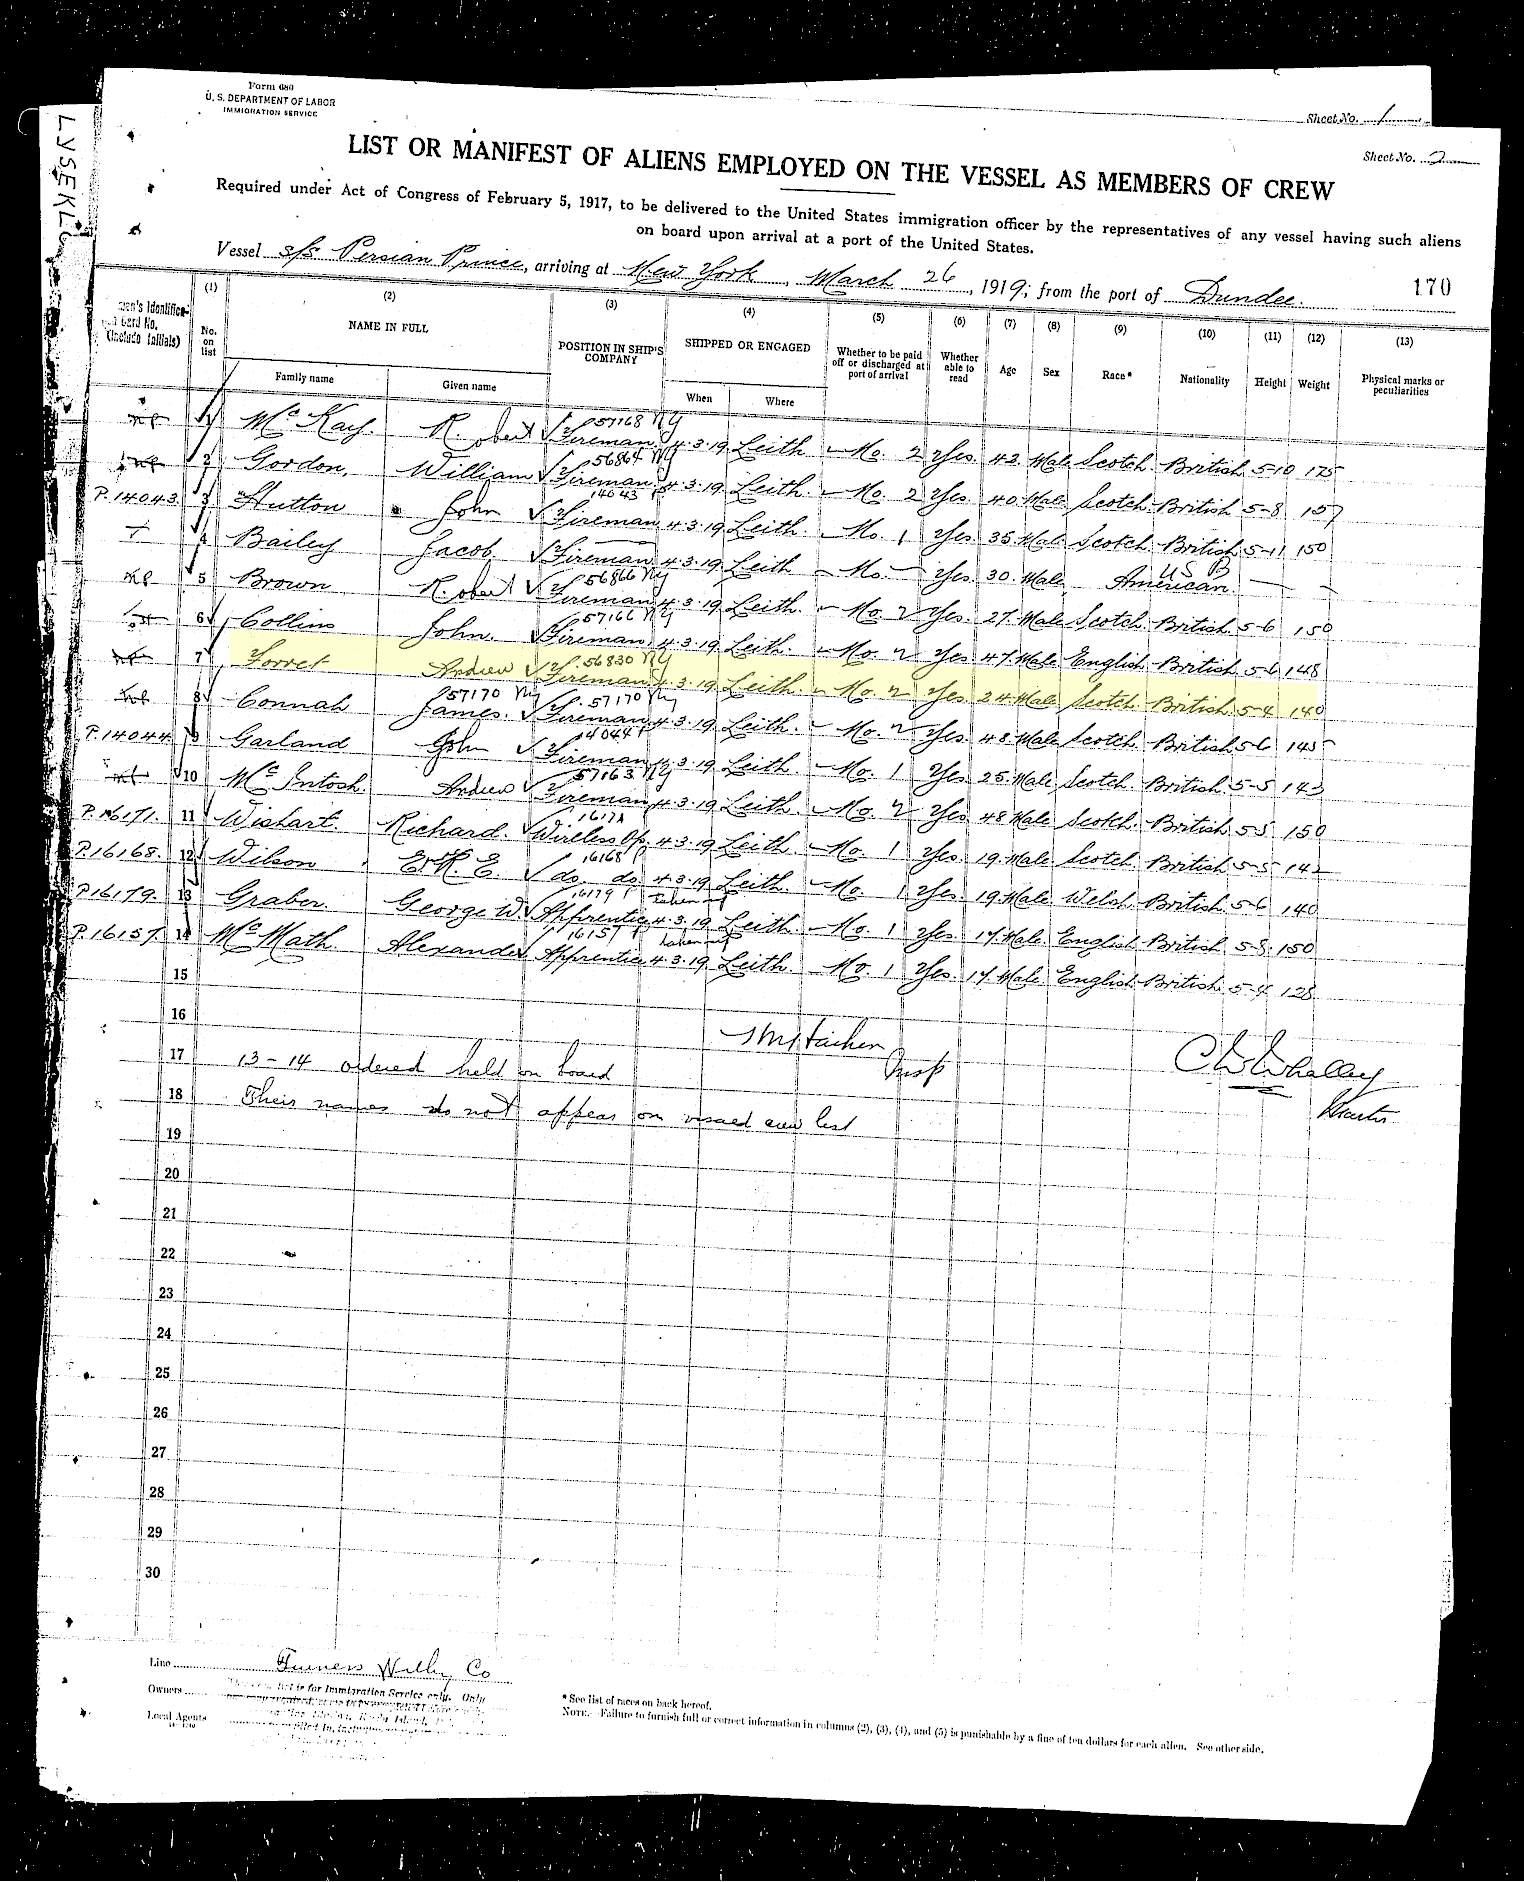 LYSEKL
Form 680
U. S. DEPARTMENT OF LABOR
IMMIGRATION SERVICE
Sheet No. 1
Sheet No. 2
LIST OR MANIFEST OF ALIENS EMPLOYED ON THE VESSEL AS MEMBERS OF CREW
Required under Act of Congress of February 5, 1917, to be delivered to the United States immigration officer by the representatives of any vessel having such aliens
on board upon arrival at a port of the United States.
Vessel s/s Persian Prince, arriving at New York, March 26, 1919; from the port of Dundee.
170
(1) (2) (3) (4) (5) (6) (7) (8) (9) (10) (11) (12) (13)
Card No. (Include Initials) No. on list NAME IN FULL POSITION IN SHIP'S COMPANY SHIPPED OR ENGAGED Whether to be paid off or discharged at port of arrival Whether able to read Age Sex Race* Nationality Height Weight Physical marks or peculiarities
Family name Given name When Where
1 McKay. Robert 57168 NY Fireman 4.3.19 Leith No. 2 Yes 42 Male Scotch British 5-10 175
2 Gordon, William 56864 NY Fireman 4.3.19 Leith. No 2 Yes 40 Male Scotch British 5-8 157
P.14043 3 Hutton John 14043 P Fireman 4.3.19 Leith. No. 1 Yes 35 Male Scotch British 5-11 150
4 Bailey Jacob Fireman 4.3.19 Leith No. — Yes 30. Male American. U S B — —
5 Brown Robert 56866 NY Fireman 4.3.19 Leith. No 2 Yes 27 Male Scotch British 5-6 150
6 Collins John. 57166 NY Fireman 4.3.19 Leith. No. 2 Yes 47 Male English British 5-6 148
7 Forret Andrew 56830 NY Fireman 4.3.19 Leith. No 2 Yes 24 Male Scotch British 5-4 140
8 Connah 57170 NY James. 57170 NY Fireman 4.3.19 Leith No 2 Yes 48 Male Scotch British 5-6 145
P.14044 9 Garland John 14044 P Fireman 4.3.19 Leith No. 1 Yes 25 Male Scotch British 5-5 143
10 McIntosh. Andrew 57163 NY Fireman 4.3.19 Leith. No 2 Yes 48 Male Scotch. British 5-5 150
P.16171. 11 Wishart. Richard. 16171 Wireless Op. 4.3.19 Leith. No. 1 Yes 19 Male Scotch British 5-5 142
P.16168. 12 Wilson 16168 P do. do. 4.3.19 Leith. No. 1 Yes 19 Male Welsh British 5-6 140
P.16179. 13 Graber. George W. 16179 P Apprentice taken up 4.3.19 Leith No. 1 Yes 17 Male English British 5-8 150
P.16157. 14 McMath. Alexander 16157 P Apprentice taken up 4.3.19 Leith. No. 1 Yes 17 Male English British 5-4 128
15
16
17 13-14 ordered held on board Insp
18 Their names do not appear on visaed crew list
C W Whalley
Master
19
20
21
22
23
24
25
26
27
28
29
30
Line Furness Withy Co
Owners
Local Agents
list is for Immigration Service only. Only
* See list of races on back hereof.
NOTE.—Failure to furnish full or correct information in columns (2), (3), (4), and (5) is punishable by a fine of ten dollars for each alien. See other side.